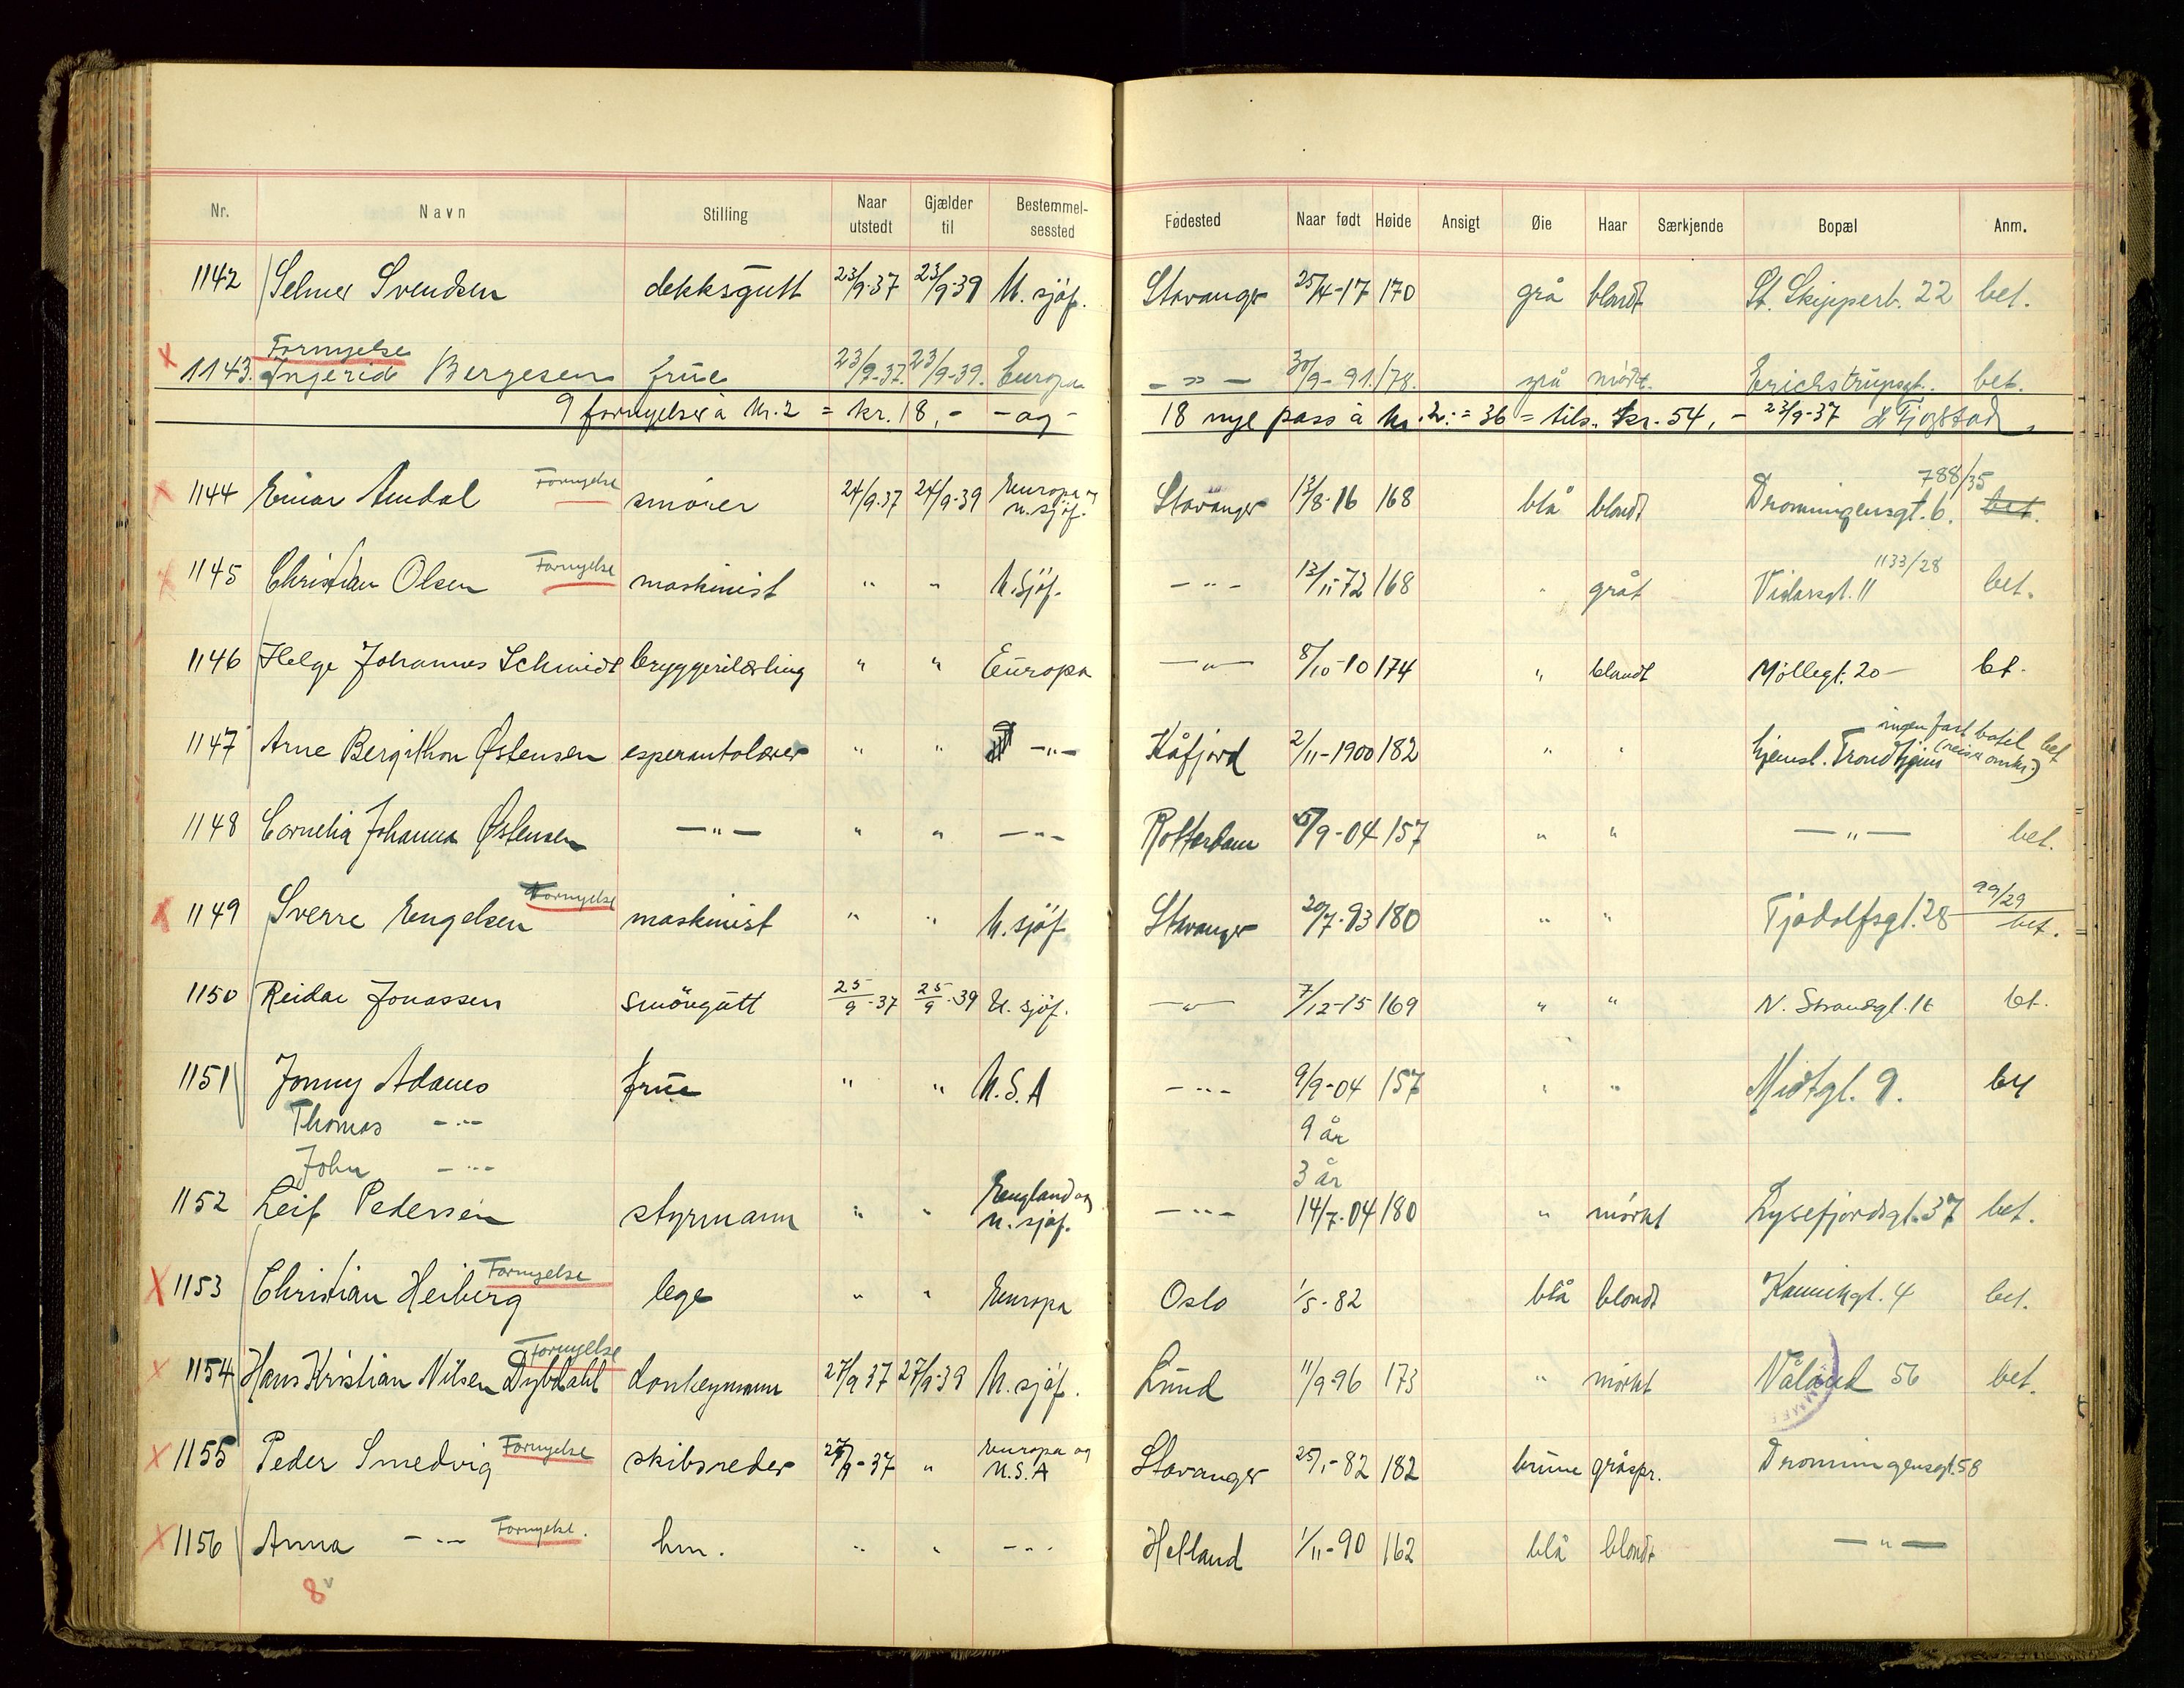 Nr. Navn Stilling Naar utstedt Gjælder til Bestemmel-sessted Fødested Naar født Høide Ansigt Øie Haar Særkjende Bopæl Anm.
1142 Selmer Svendsen dekksgutt 23/9-37 23/9-39 U. sjøf. Stavanger 25/4-17 170 grå blondt St. Skipperb. 22 bet.
Fornyelse
x 1143. Ingerid Bergesen frue 23/9-37. 23/9-39. Europa -"- 30/9-91. 178. grå mørkt. Erichstrupsgt. bet.
9 fornyelser à kr. 2 = kr. 18,- -og- 18 nye pass à kr. 2: = 36 = tils. kr. 54,- 23/9-37
788/35
x 1144 Einar Amdal Fornyelse smører 24/9-37 24/9-39 Europa og u. sjøf. Stavanger 13/8-16 168 blå blondt Dronningensgt. 6. bet.
1133/28
x 1145 Christian Olsen Fornyelse maskinist " " U. sjøf. -"- 13/11-72 168 " grått Vidarsgt. 11 bet.
1146 Helge Johannes Schmidt bryggerilærling " " Europa -"- 8/10-10 174 " blondt Møllegt. 20- bet.
1147 Arne Bergithon Østensen esperantolærer " " -"- Kåfjord 2/11-1900 182 " " hjemst. Trondhjem ingen fast bopel (reise omkr.) bet
1148 Cornelia Johanna Østensen -"- " " -"- Rotterdam /9-04 157 " " -"- bet.
x 1149 Sverre Engelsen Fornyelse maskinist " " U. sjøf Stavanger 20/7-93 180 " " Tjodolfsgt. 28 99/29 bet.
1150 Reidar Jonassen smøregutt 25/9-37 25/9-39 U. sjøf. -"- 7/12-15 169 " " N. Strandgt. 14 bet.
1151 Jonny Adams frue " " U.S.A -"- 9/9-04 157 " " Midtgt. 9. bet
Thomas -"- 9 år
John -"- 3 år
1152 Leif Pedersen styrmann " " England og u. sjøf. -"- 14/7-04 180 " mørkt Lysefjordsgt. 37 bet.
x 1153 Christian Heiberg Fornyelse lege " " Europa Oslo 1/5-82 blå blondt Kannikgt. 4 bet.
x 1154 Hans Kristian Nilsen Dybdahl Fornyelse donkeymann 27/9-37 27/9-39 U. sjøf. Lund 11/9-96 173 " mørkt Våland 56 bet.
x 1155 Peder Smedvig Fornyelse skibsreder 27/9-37 " Europa og U.S.A Stavanger 25/1-82 182 brune gråspr. Dronningensgt. 58
x 1156 Anna -"- Fornyelse. hm. " " -"- Helland 1/11-90 162 blå blondt -"-
8